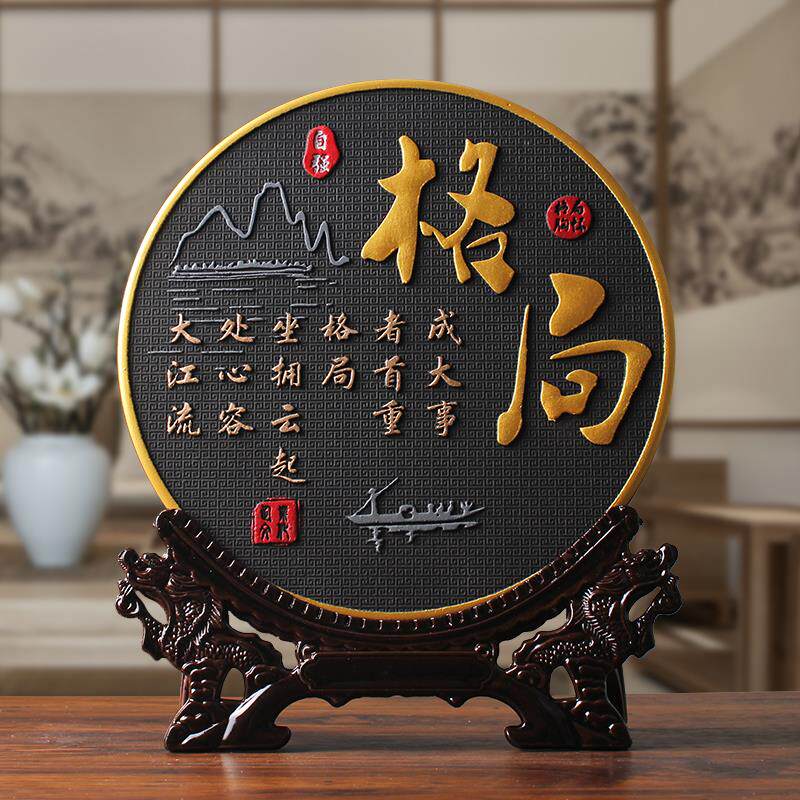 格局
自强
成大事
者首重
格局
坐拥云起
处心容
大江流